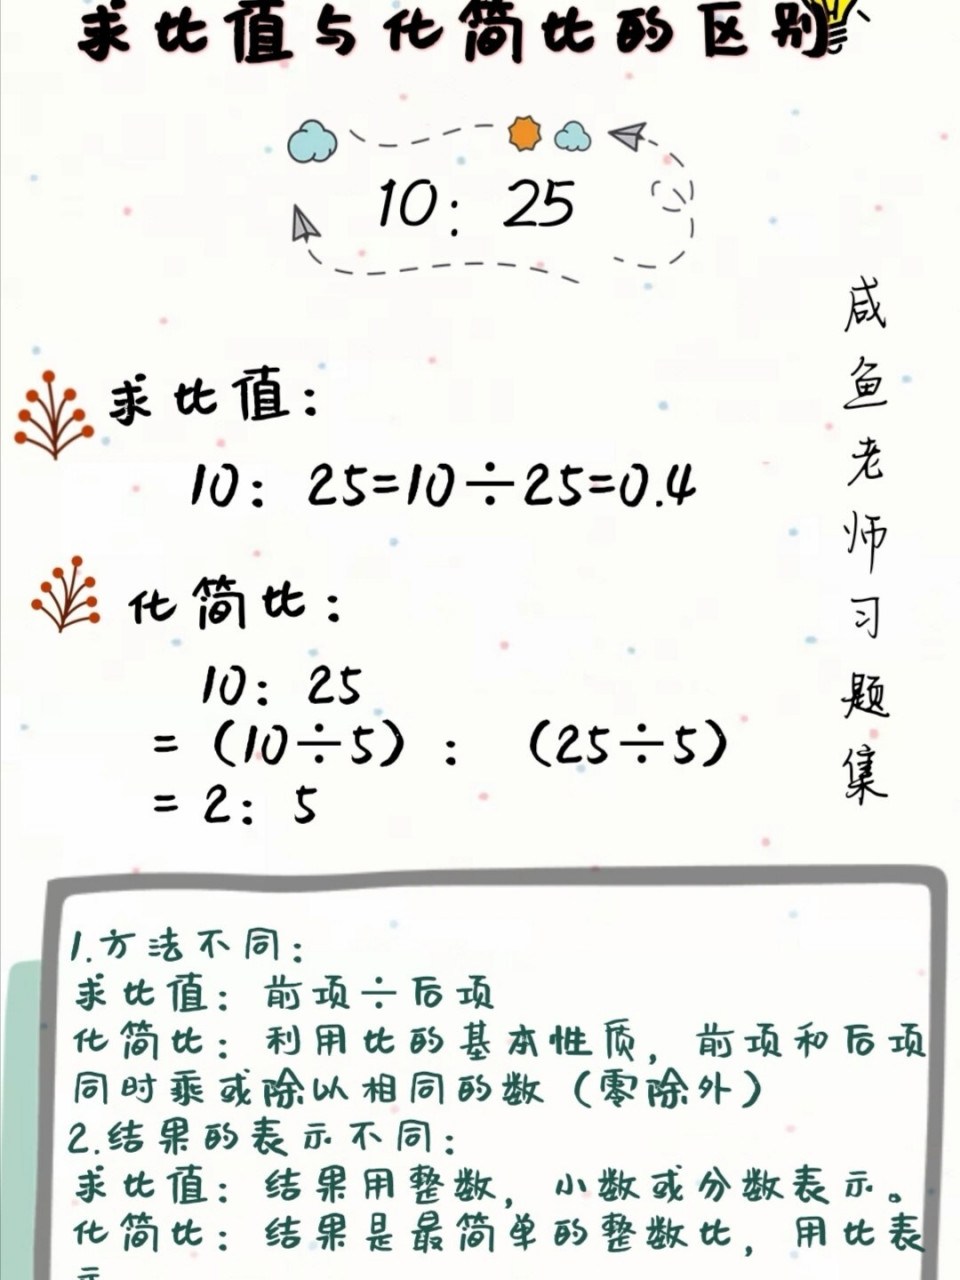 求比值与化简比的区别
10：25
求比值：
10：25=10÷25=0.4
化简比：
10：25
=（10÷5）：（25÷5）
=2：5
咸鱼老师习题集
1.方法不同：
求比值：前项÷后项
化简比：利用比的基本性质，前项和后项
同时乘或除以相同的数（零除外）
2.结果的表示不同：
求比值：结果用整数，小数或分数表示。
化简比：结果是最简单的整数比，用比表